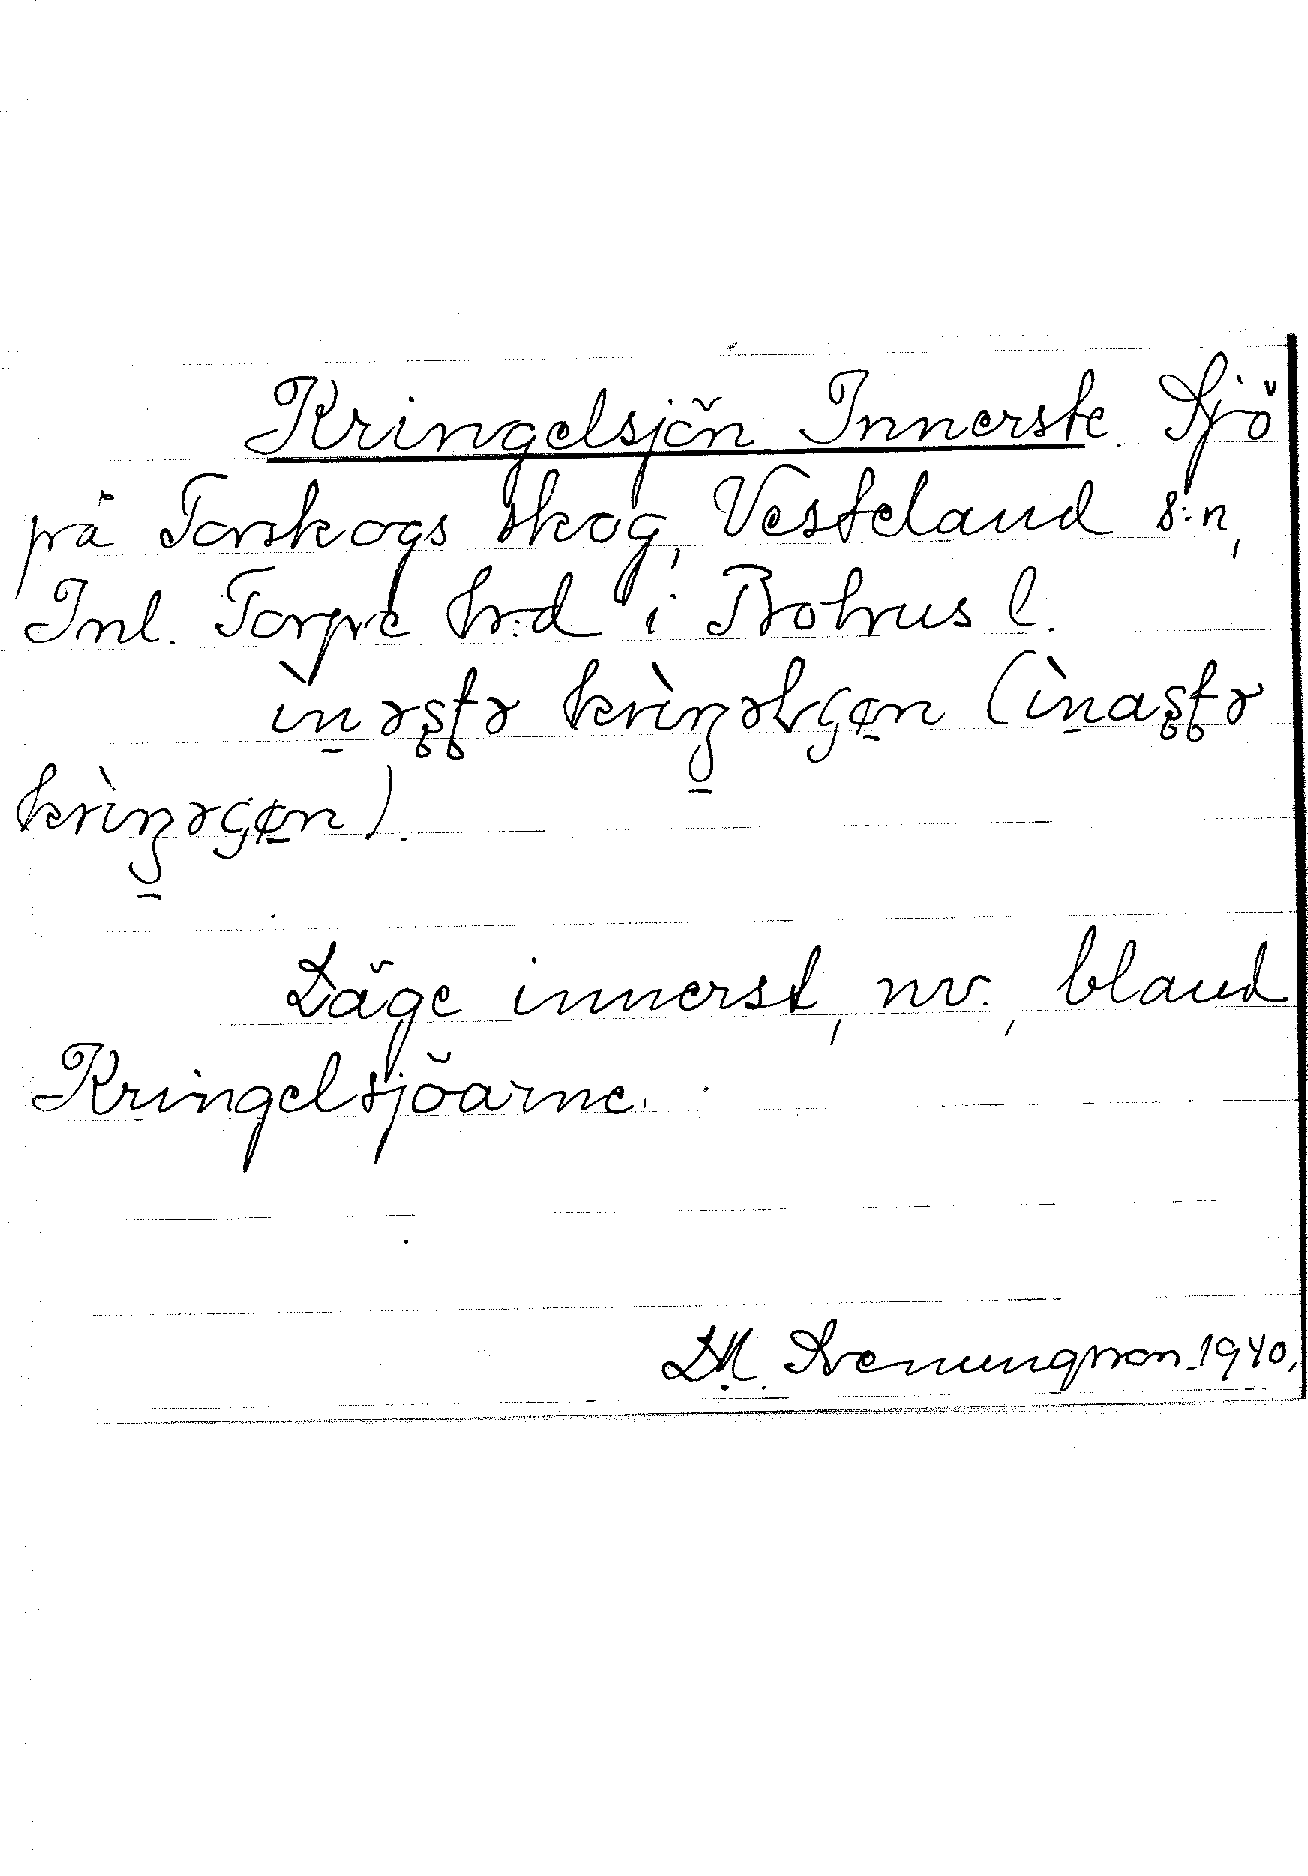 Kringelsjön Innerste. Sjö
på Torskogs skog, Vesteland s:n,
Inl. Torpe hr:d i Bohus l.
ìn̲əʂʈə krìŋ̲əlʂøn̲ (ìn̲aʂʈə
krìŋ̲əʂøn̲).
Läge innerst, nv., bland
Kringelsjöarne.
D.M. Svenungsson 1940.